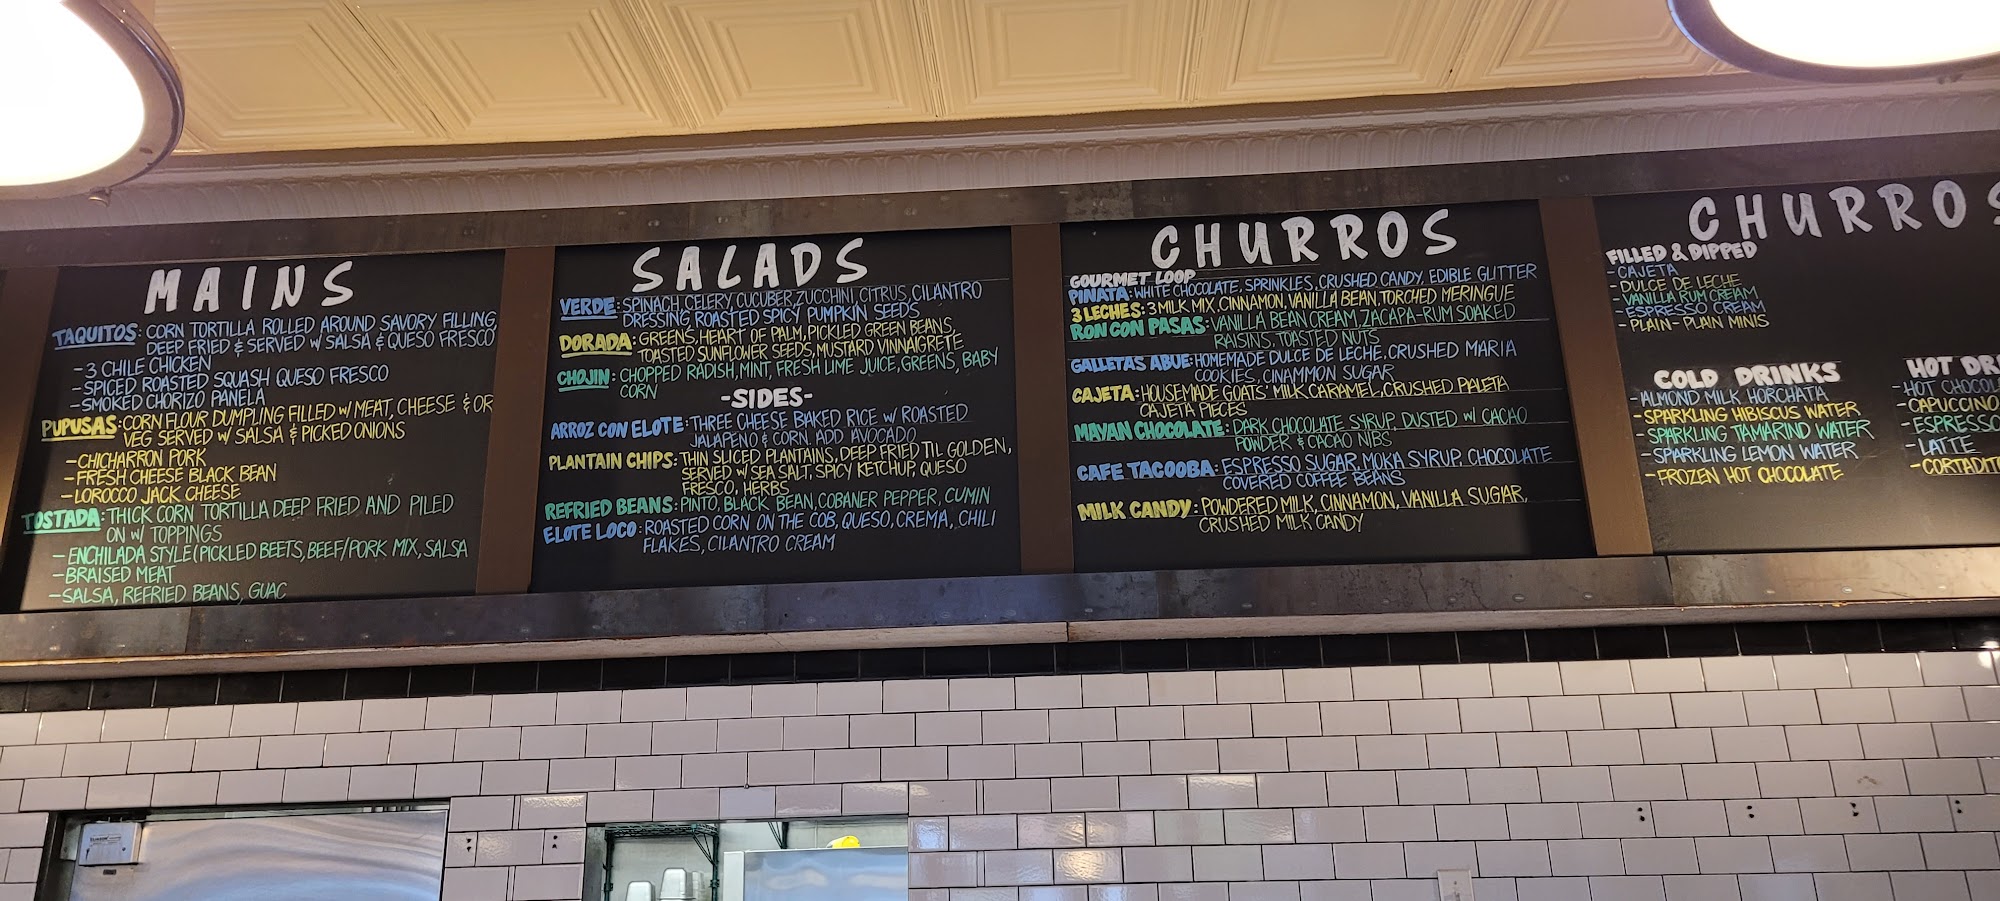 MAINS
TAQUITOS: CORN TORTILLA ROLLED AROUND SAVORY FILLING,
DEEP FRIED & SERVED W/ SALSA & QUESO FRESCO
-3 CHILE CHICKEN
-SPICED ROASTED SQUASH QUESO FRESCO
-SMOKED CHORIZO PANELA
PUPUSAS: CORN FLOUR DUMPLING FILLED W/ MEAT, CHEESE & OR
VEG SERVED W/ SALSA & PICKED ONIONS
-CHICHARRON PORK
-FRESH CHEESE BLACK BEAN
-LOROCCO JACK CHEESE
TOSTADA: THICK CORN TORTILLA DEEP FRIED AND PILED
ON W/ TOPPINGS
-ENCHILADA STYLE (PICKLED BEETS, BEEF/PORK MIX, SALSA
-BRAISED MEAT
-SALSA, REFRIED BEANS, GUAC
SALADS
VERDE: SPINACH, CELERY, CUCUBER, ZUCCHINI, CITRUS, CILANTRO
DRESSING ROASTED SPICY PUMPKIN SEEDS
DORADA: GREENS, HEART OF PALM, PICKLED GREEN BEANS,
TOASTED SUNFLOWER SEEDS, MUSTARD VINNAIGRETE
CHOJIN: CHOPPED RADISH, MINT, FRESH LIME JUICE, GREENS, BABY
CORN
-SIDES-
ARROZ CON ELOTE: THREE CHEESE BAKED RICE W/ ROASTED
JALAPENO & CORN. ADD AVOCADO
PLANTAIN CHIPS: THIN SLICED PLANTAINS, DEEP FRIED TIL GOLDEN,
SERVED W/ SEA SALT, SPICY KETCHUP, QUESO
FRESCO, HERBS
REFRIED BEANS: PINTO, BLACK BEAN, COBANER PEPPER, CUMIN
ELOTE LOCO: ROASTED CORN ON THE COB, QUESO, CREMA, CHILI
FLAKES, CILANTRO CREAM
CHURROS
GOURMET LOOP
PINATA: WHITE CHOCOLATE, SPRINKLES, CRUSHED CANDY, EDIBLE GLITTER
3 LECHES: 3 MILK MIX, CINNAMON, VANILLA BEAN, TORCHED MERINGUE
RON CON PASAS: VANILLA BEAN CREAM, ZACAPA-RUM SOAKED
RAISINS, TOASTED NUTS
GALLETAS ABUE: HOMEMADE DULCE DE LECHE, CRUSHED MARIA
COOKIES, CINAMMON SUGAR
CAJETA: HOUSEMADE GOATS' MILK CARAMEL, CRUSHED PALETA
CAJETA PIECES
MAYAN CHOCOLATE: DARK CHOCOLATE SYRUP, DUSTED W/ CACAO
POWDER & CACAO NIBS
CAFE TACOOBA: ESPRESSO SUGAR, MOKA SYRUP, CHOCOLATE
COVERED COFFEE BEANS
MILK CANDY: POWDERED MILK, CINNAMON, VANILLA SUGAR,
CRUSHED MILK CANDY
CHURROS
FILLED & DIPPED
-CAJETA
-DULCE DE LECHE
-VANILLA RUM CREAM
-ESPRESSO CREAM
-PLAIN-PLAIN MINIS
COLD DRINKS
-ALMOND MILK HORCHATA
-SPARKLING HIBISCUS WATER
-SPARKLING TAMARIND WATER
-SPARKLING LEMON WATER
-FROZEN HOT CHOCOLATE
HOT DR
-HOT CHOCOL
-CAPUCCINO
-ESPRESSO
-LATTE
-CORTADIT